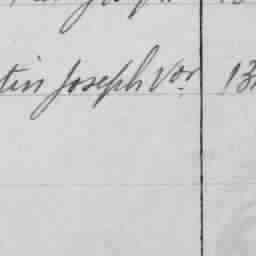 tin Joseph Vor 13